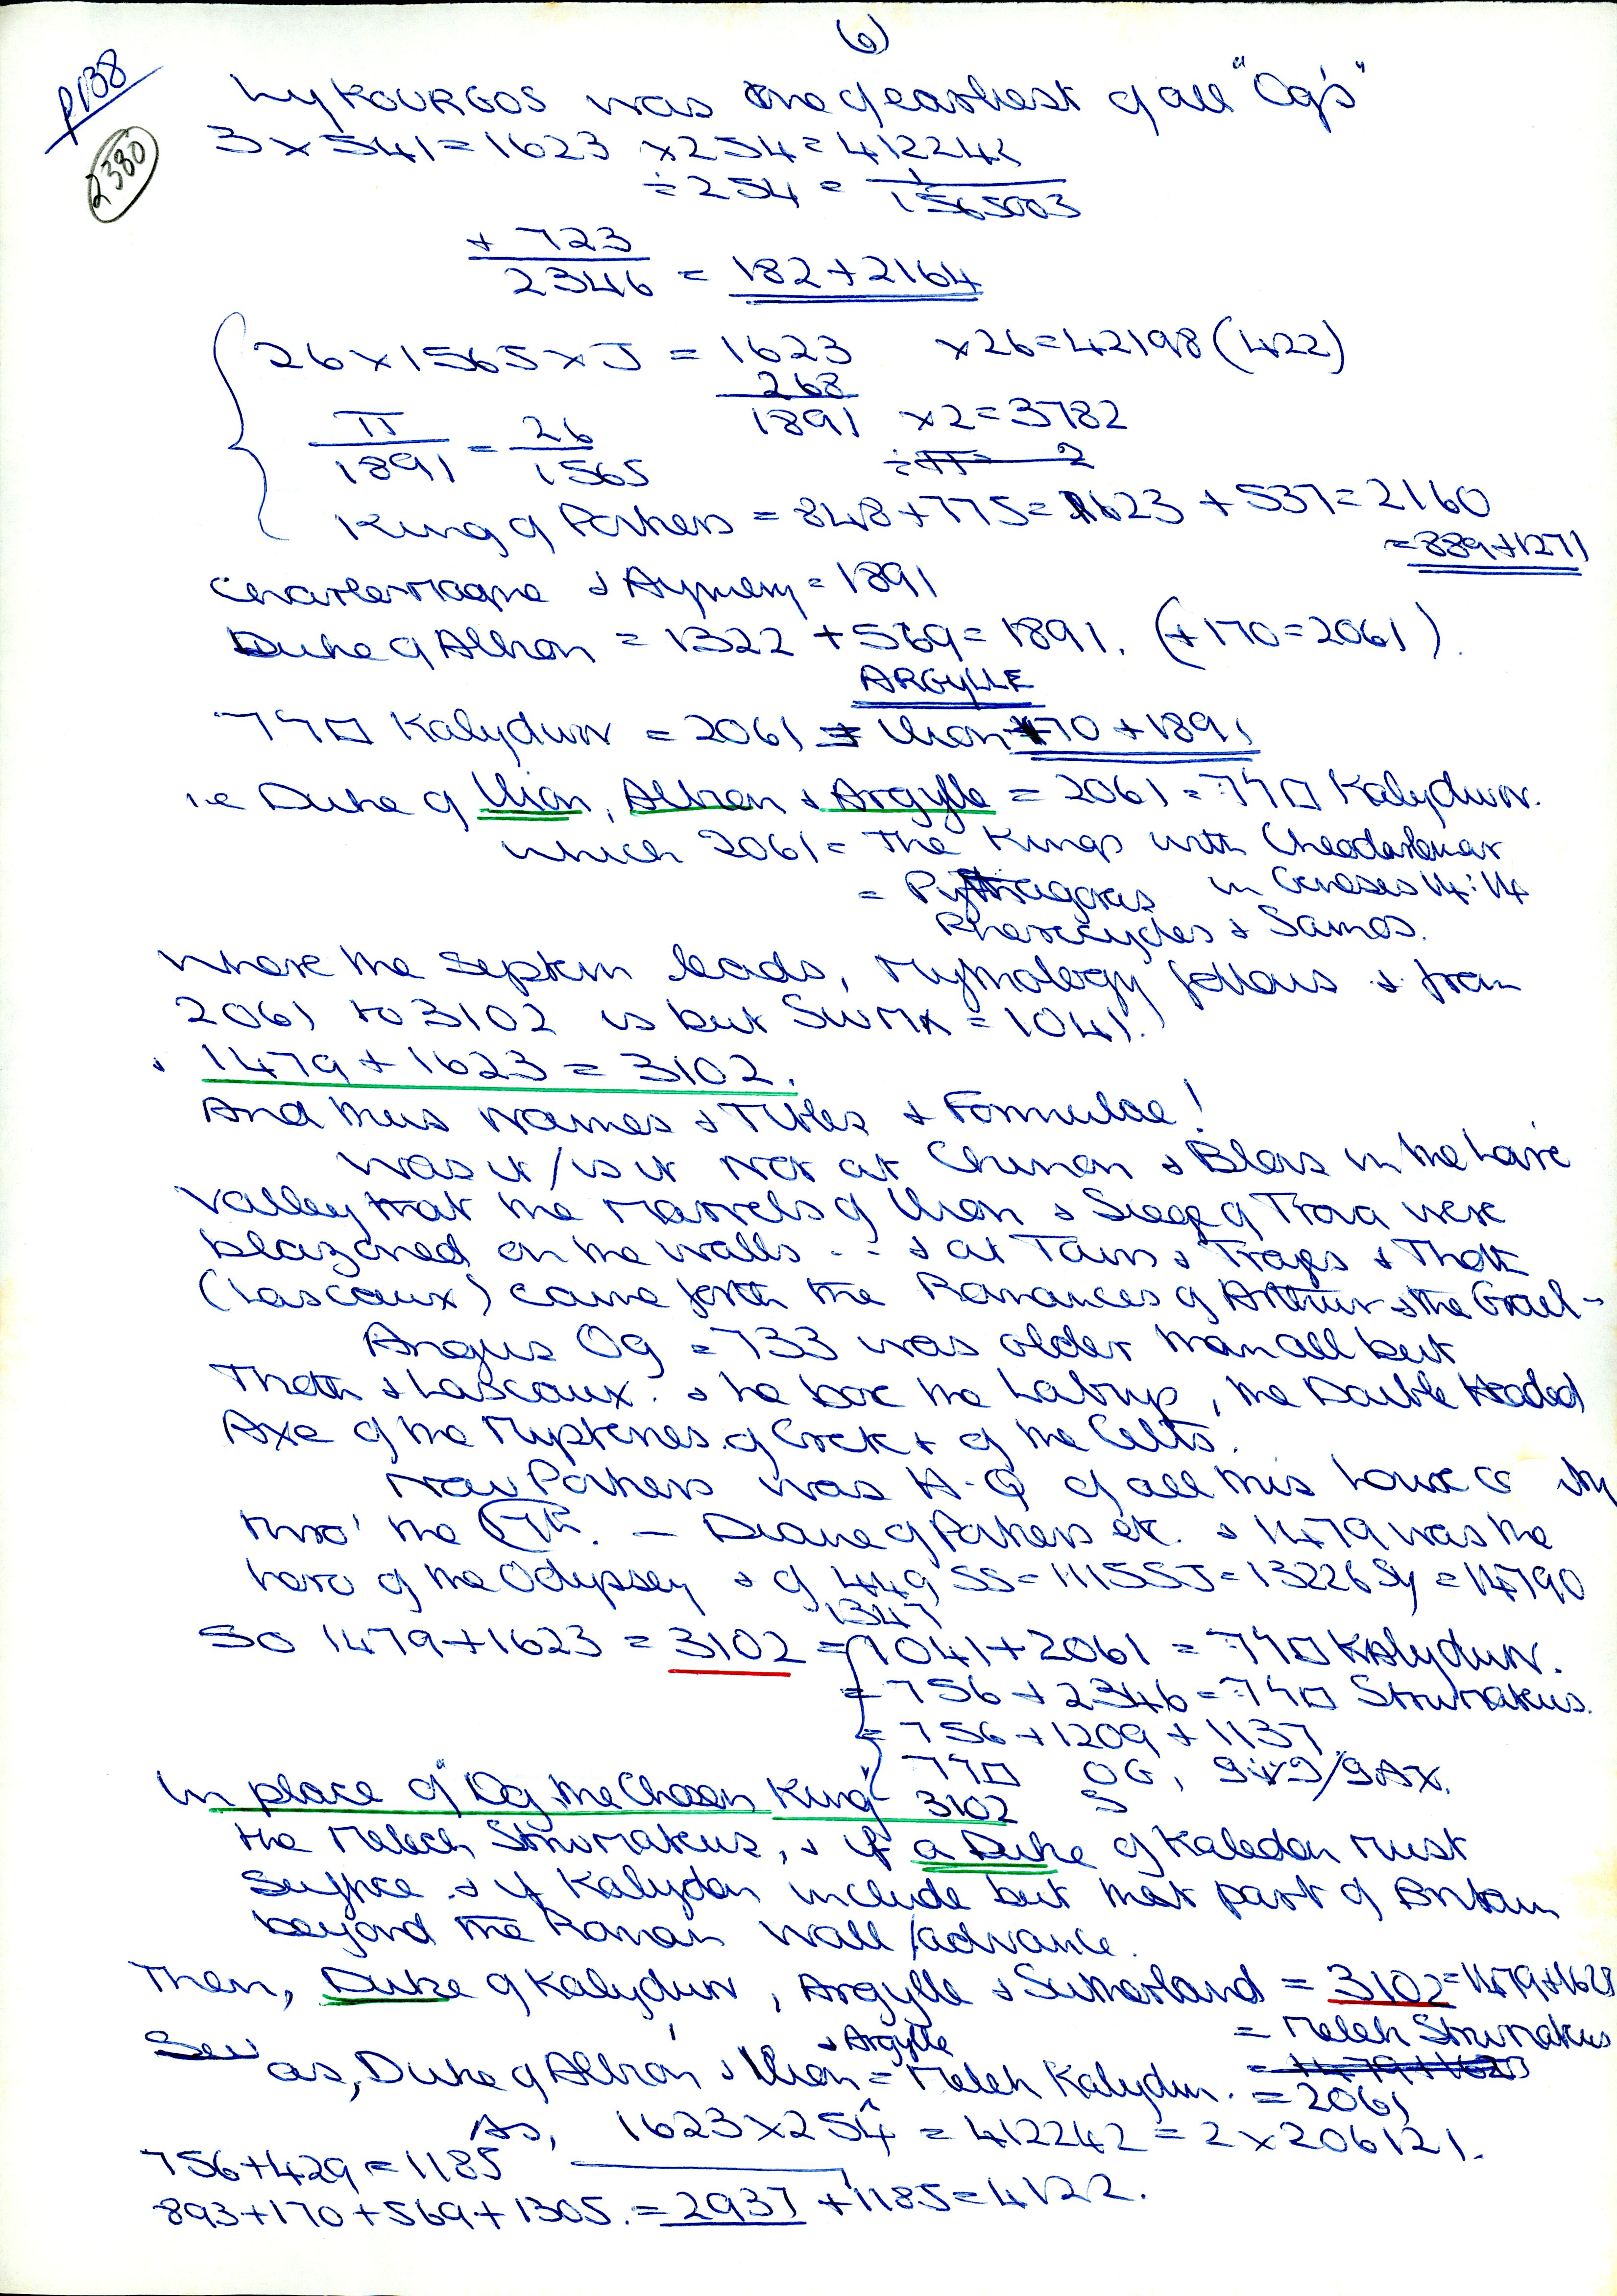 (6)
P138
2380
Lykourgos was one of earliest of all "Og's"
3 x 541 = 1623 x 254 = 412242
÷ 254 = 1/1565003
+ 723
2346 = 182 + 2164
26 x 1565 x J = 1623 x 26 = 42198 (422)
268
π/1891 = 26/1565 1891 x 2 = 3782
King of Poitiers = 848 + 775 = 1623 + 537 = 2160
= 889 + 1271
Charlemagne & Aymery = 1891
Duke of Albion = 1322 + 569 = 1891. (+ 170 = 2061).
ARGYLLE
Kalydwn = 2061 = Ilion 170 + 1891
i.e Duke of Ilion, Albion & Argylle = 2061 = Kalydwn.
which 2061 = The Kings with
= Pythagoras in Genesis 14:14
Pherecydes & Samos.
Where the leads, Mythology follows & from
2061 to 3102 is but = 1041.
& 1479 + 1623 = 3102.
And thus Names & Titles & Formulae!
Was it / is it Not at Chinon & Blois in the Loire
Valley that the Marvels of Ilion & Siege of Troia were
blazoned on the walls -- & at & & Thoth
(Lascaux) came forth the Romances of Arthur & the Grail -
Angus Og = 733 was older than all but
Thoth & Lascaux. & he bore the Labrys, the Double Headed
Axe of the Mysteries of Crete & of the Celts.
Now Poitiers was H.Q of all this
thro' the - Diane of Poitiers etc. & 1479 was the
hero of the Odyssey & of 449 SS = 1115SJ = 13226 Sy = 14790
1347
So 1479 + 1623 = 3102 = 1041 + 2061 = Kalydwn.
= 756 + 2346 =
= 756 + 1209 + 1137
OG,
In place of "Og the Chosen King" 3102 S
the Melech & if a Duke of Kaledon must
suffice & if Kalydon include but that part of Britain
beyond the Roman Wall/advance.
Then, Duke of Kalydwn, Argylle & Sutherland = 3102 = 1479 + 1623
= Melek
as, Duke of Albion & Ilion & Argylle = Melek Kalydwn. = 2061
As, 1623 x 254 = 412242 = 2 x 206121.
756 + 429 = 1185
893 + 170 + 569 + 1305. = 2937 + 1185 = 4122.